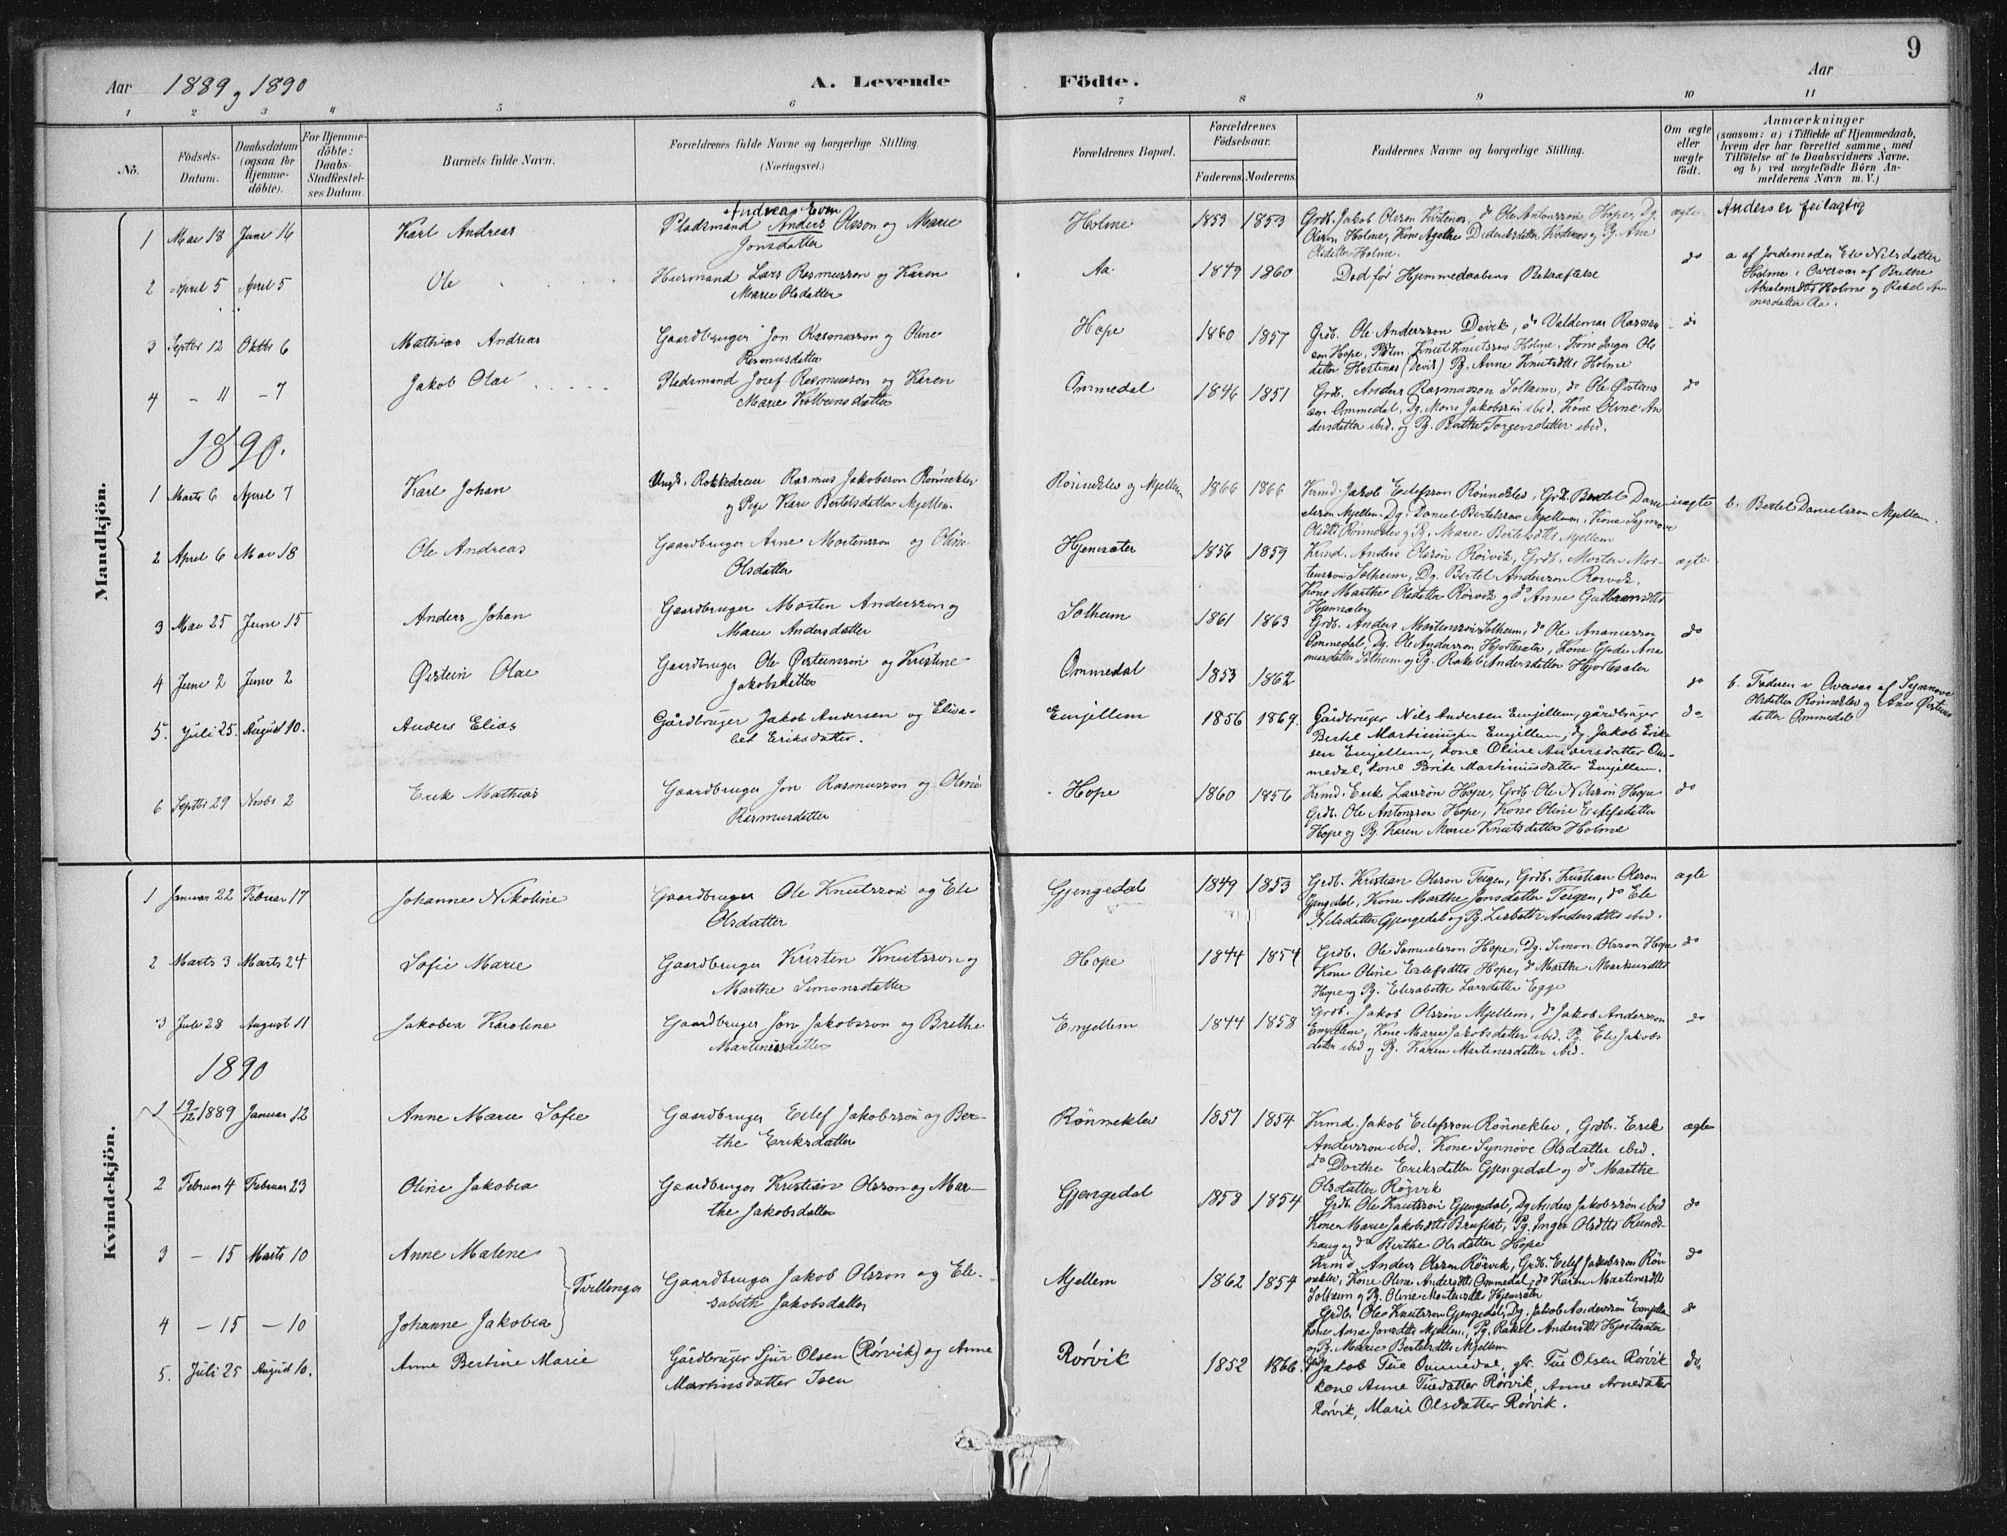 9
Aar 1889 og 1890 A. Levende Födte. Aar
1 2 3 4 5 6 7 8 9 10 11
No. Födsels-Datum. Daabsdatum (ogsaa for Hjemme-döbte). For Hjemme-döbte: Daabs-Stadfæstel-ses Datum. Barnets fulde Navn. Forældrenes fulde Navne og borgerlige Stilling. (Næringsvei.) Forældrenes Bopæl. Forældrenes Födselsaar. Faderens. Moderens. Faddernes Navne og borgerlige Stilling. Om ægte eller uægte födt. Anmærkninger (saasom: a) i Tilfælde af Hjemmedaab, hvem der har forrettet samme, med Tilföielse af to Daabsvidners Navne, og b) ved uægtefödte Börn An-melderens Navn m. V.)
Mandkjön.
Andreas Even
1 Mai 13 Juni 16 Karl Andreas Pladsmand Anders Olsson og Marie Jonsdatter Holme 1853 1853 Grdb. Jakob Olsson Hestenes, do Ole Antonsson Hope, Dg. Olsson Holme, Kone Agathe Dideriksdatter Hestenes og Pg. Ane Olsdatter Holme. ægte Anders er feilagtig
2 April 5 April 5 Ole Husmand Lars Rasmusson og Karen Marie Olsdatter Aa 1849 1860 Død før Hjemmedaabens Bekræftelse do a af Jordemoder Ele Nilsdatter Holme i Overvær af Brithe Absalonsdtr Holme og Rakel An-nesdatter Aa.
3 Septbr 12 Oktbr 6 Mathias Andreas Gaardbruger Jon Rasmusson og Oline Rasmusdatter Hope 1860 1857 Grdb. Ole Andersson Devik, do Valdemar Rasmus-son Hope, Knut Knutsson Holme, Kone Inger Ols-datter Hestenes (Devik) Pg. Anne Knutsdtr Holme do
4 - 11 - 7 Jakob Olai Pladsmand Josef Rasmusson og Karen Marie Kolbeinsdatter Ommedal 1846 1851 Grdb. Anders Rasmusson Solheim, do Ole Øisteins-son Ommedal, Dg. Mons Jakobsson ibid. Kone Oline An-dersdatter ibid. og Pg. Berthe Torgersdatter ibid. do
1890.
1 Marts 6 April 7 Karl Johan Ungk. Rokkedreier Rasmus Jakobsson Rønneklev og Pige Kari Bertelsdatter Mjellem. Rønneklev og Mjellem 1866 1866 Krmd. Jakob Eilefsson Rønneklev, Grdb. Bertel Dani-elsson Mjellem, Dg. Daniel Bertelsson Mjellem, Kone Synnøve Olsdtr Rønneklev, Pg. Marie Bertelsdtr Mjellem uægte b. Bertel Danielsson Mjellem.
2 April 6 Mai 18 Ole Andreas Gaardbruger Arne Mortensson og Oline Olsdatter Hjemsæter 1856 1859 Krmd. Anders Olsson Rørvik, Grdb. Morten Mor-tensson Solheim, Dg. Bertel Andersson Rørvik, Kone Marthe Olsdatter Rørvik og do Anne Gulbrandsdtr Hjemsæter ægte
3 Mai 25 Juni 15 Anders Johan Gaardbruger Morten Andersson og Marie Andersdatter Solheim 1861 1863 Grdb. Anders Mortensson Solheim, do Ole Ananiasson Ommedal, Dg. Ole Andersson Hjortesæter, Kone Gjøde Ras-musdatter Solheim og Pg. Rakel Andersdatter Hjortesæter do
4 Juni 2 Juni 2 Øistein Olai Gaardbruger Ole Øisteinsson og Kristine Jakobsdatter Ommedal 1853 1862 do b. Faderen i Overvær af Synnøve Olsdatter Rønneklev og Ane Øisteins-datter Ommedal
5. Juli 25. August 10. Anders Elias Gårdbruger Jakob Andersen og Elisa-bet Eriksdatter. Emjellem 1856 1869. Gårdbruger Nils Andersen Emjellem, gårdbruger Bertel Martiniussen Emjellem, dg. Jakob Erik-sen Emjellem, kone Oline Andersdatter Om-medal, kone Brite Martiniusdatter Emjellem. do
6 Septbr 29 Novbr 2 Erik Mathias Gaardbruger Jon Rasmusson og Oline Rasmusdatter Hope 1860 1856 Krmd. Erik Larsson Hope, Grdb. Ole Nilsson Hope Grdb. Ole Antonsson Hope, Kone Oline Eilefsdatter Hope og Pg. Karen Marie Knutsdatter Holme do
Kvindekjön.
1 Januar 22 Februar 17 Johanne Nikoline Gaardbruger Ole Knutsson og Ele Olsdatter Gjengedal 1849 1853 Grdb. Kristian Olsson Teigen, Grdb. Kristian Olsson Gjengedal, Kone Marthe Jonsdatter Teigen, do Ele Nilsdatter Gjengedal og Pg. Lisbeth Andersdtr ibid. ægte
2 Marts 3 Marts 24 Sofie Marie Gaardbruger Kristen Knutsson og Marthe Simonsdatter Hope 1844 1854 Grdb. Ole Samuelsson Hope, Dg. Simon Olsson Hope Kone Oline Eilefsdtr Hope, do Marthe Markusdtr Hope og Pg. Elisabeth Larsdatter Egge do
3 Juli 28 August 11 Jakobea Karoline Gaardbruger Jon Jakobsson og Brithe Martinusdatter Emjellem 1844 1858 Grdb. Jakob Olsson Mjellem, do Jakob Andersson Emjellem, Kone Marie Jakobsdatter ibid. Pg. Ele Jakobs-datter ibid og Pg. Karen Martinesdatter ibid. do
1890
1 19/12 1889 Januar 12 Anne Marie Sofie Gaardbruger Eilef Jakobsson og Ber-the Eriksdatter Rønneklev 1857 1854 Krmd. Jakob Eilefsson Rønneklev, Grdb. Erik Andersson ibid. Kone Synnøve Olsdatter ibid. do Dorthe Eriksdatter Gjengedal og do Marthe Olsdatter Rørvik ægte
2 Februar 4 Februar 23 Oline Jakobea Gaardbruger Kristian Olsson og Mar-the Jakobsdatter Gjengedal 1858 1854 Grdb. Ole Knutsson Gjengedal, Dg Anders Jakobsson ibid Kone Marie Jakobsdtr Bruflat, Pg. Inger Olsdtr Runds-haug og do Berthe Olsdatter Hope do
3 - 15 Marts 10 Anne Malene Tvillinger Gaardbruger Jakob Olsson og Eli-sabeth Jakobsdatter Mjellem 1862 1854 Krmd Anders Olsson Rørvik, Grdb. Eilef Jakobsson Røn-neklev, Kone Oline Andersdtr Ommedal, do Karen Martinsdtr Solheim og Pg. Oline Mortensdtr Hjemsæter do
4 - 15 - 10 Johanne Jakobea Grdb. Ole Knutsson Gjengedal, Dg. Jakob Andersson Emjellem Kone Anna Jonsdtr Mjellem, Pg. Rakel Andersdtr Hjortesæter og Pg. Marie Bertelsdtr Mjellem do
5. Juli 25 August 10. Anne Bertine Marie Gårdbruger Sjur Olsen (Rørvik) og Anne Martinsdatter Isen Rørvik 1852 1866. Jakob Tue Ommedal, gbr. Tue Olsen Rørvik kone Anne Tuedatter Rørvik, Anne Arnedatter Rørvik, Marie Olsdatter Rørvik. do